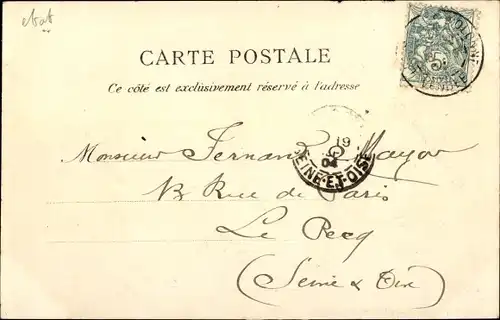 état
CARTE POSTALE
Ce côté est exclusivement réservé à l'adresse
5
19
04
SEINE-ET-OISE
Monsieur Fernand Mayor
13 Rue de Paris
Le Pecq
(Seine & Oise)